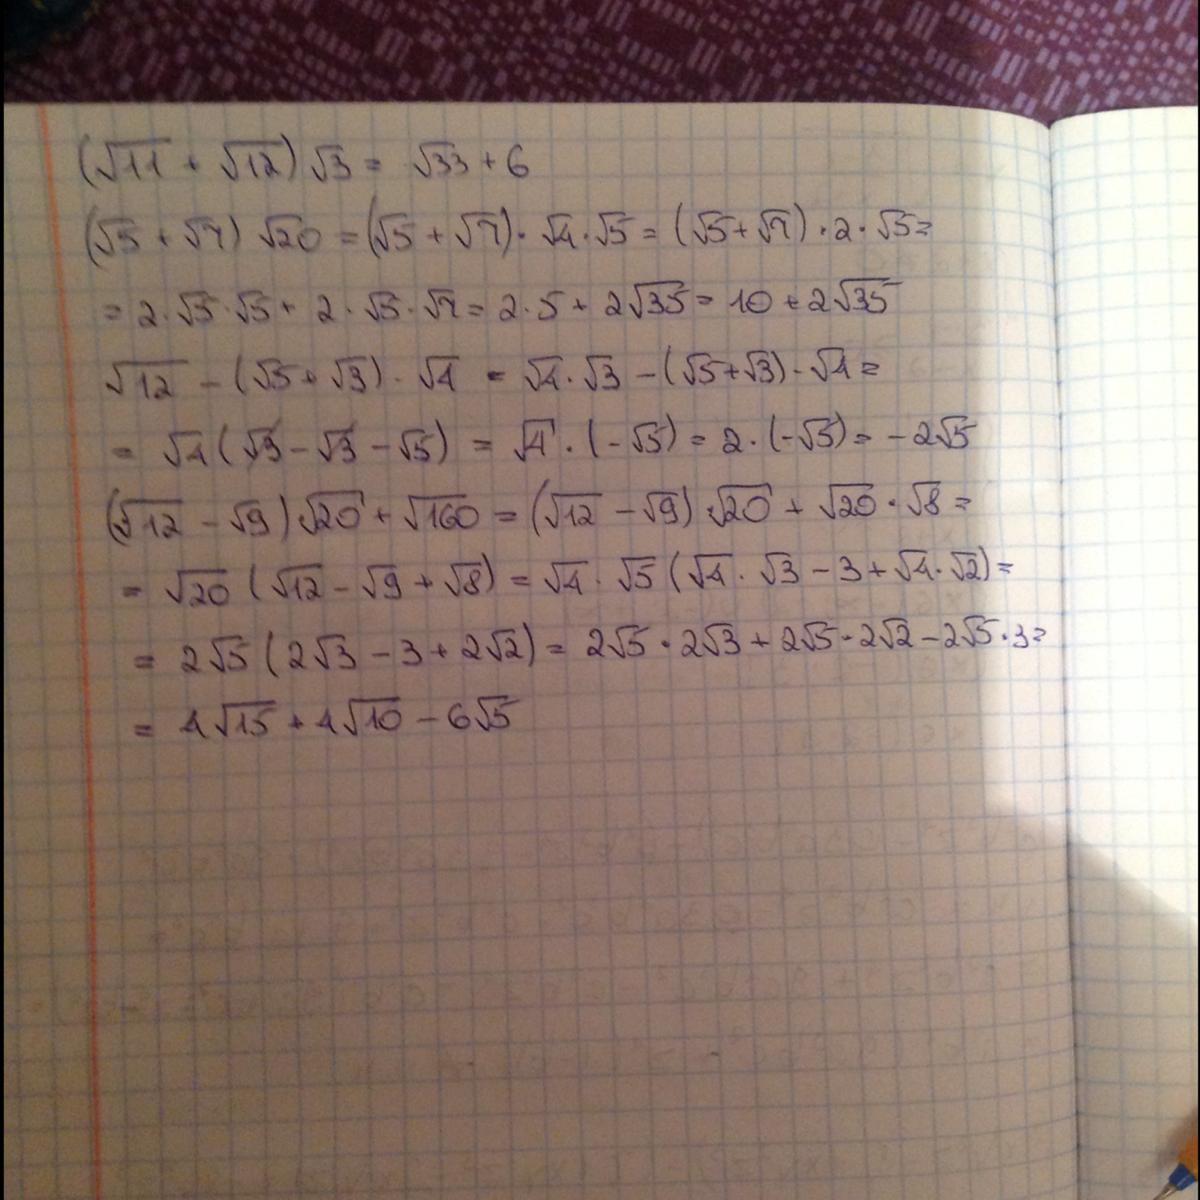 (√11 + √12) √3 = √33 + 6
(√5 + √7) √20 = (√5 + √7) · √4 · √5 = (√5 + √7) · 2 · √5 =
= 2 · √5 · √5 + 2 · √5 · √7 = 2 · 5 + 2√35 = 10 + 2√35
√12 - (√5 + √3) · √4 = √4 · √3 - (√5 + √3) · √4 =
= √4 (√3 - √3 - √5) = √4 · (-√5) = 2 · (-√5) = -2√5
(√12 - √9) √20 + √160 = (√12 - √9) √20 + √20 · √8 =
= √20 (√12 - √9 + √8) = √4 · √5 (√4 · √3 - 3 + √4 · √2) =
= 2√5 (2√3 - 3 + 2√2) = 2√5 · 2√3 + 2√5 · 2√2 - 2√5 · 3 =
= 4√15 + 4√10 - 6√5